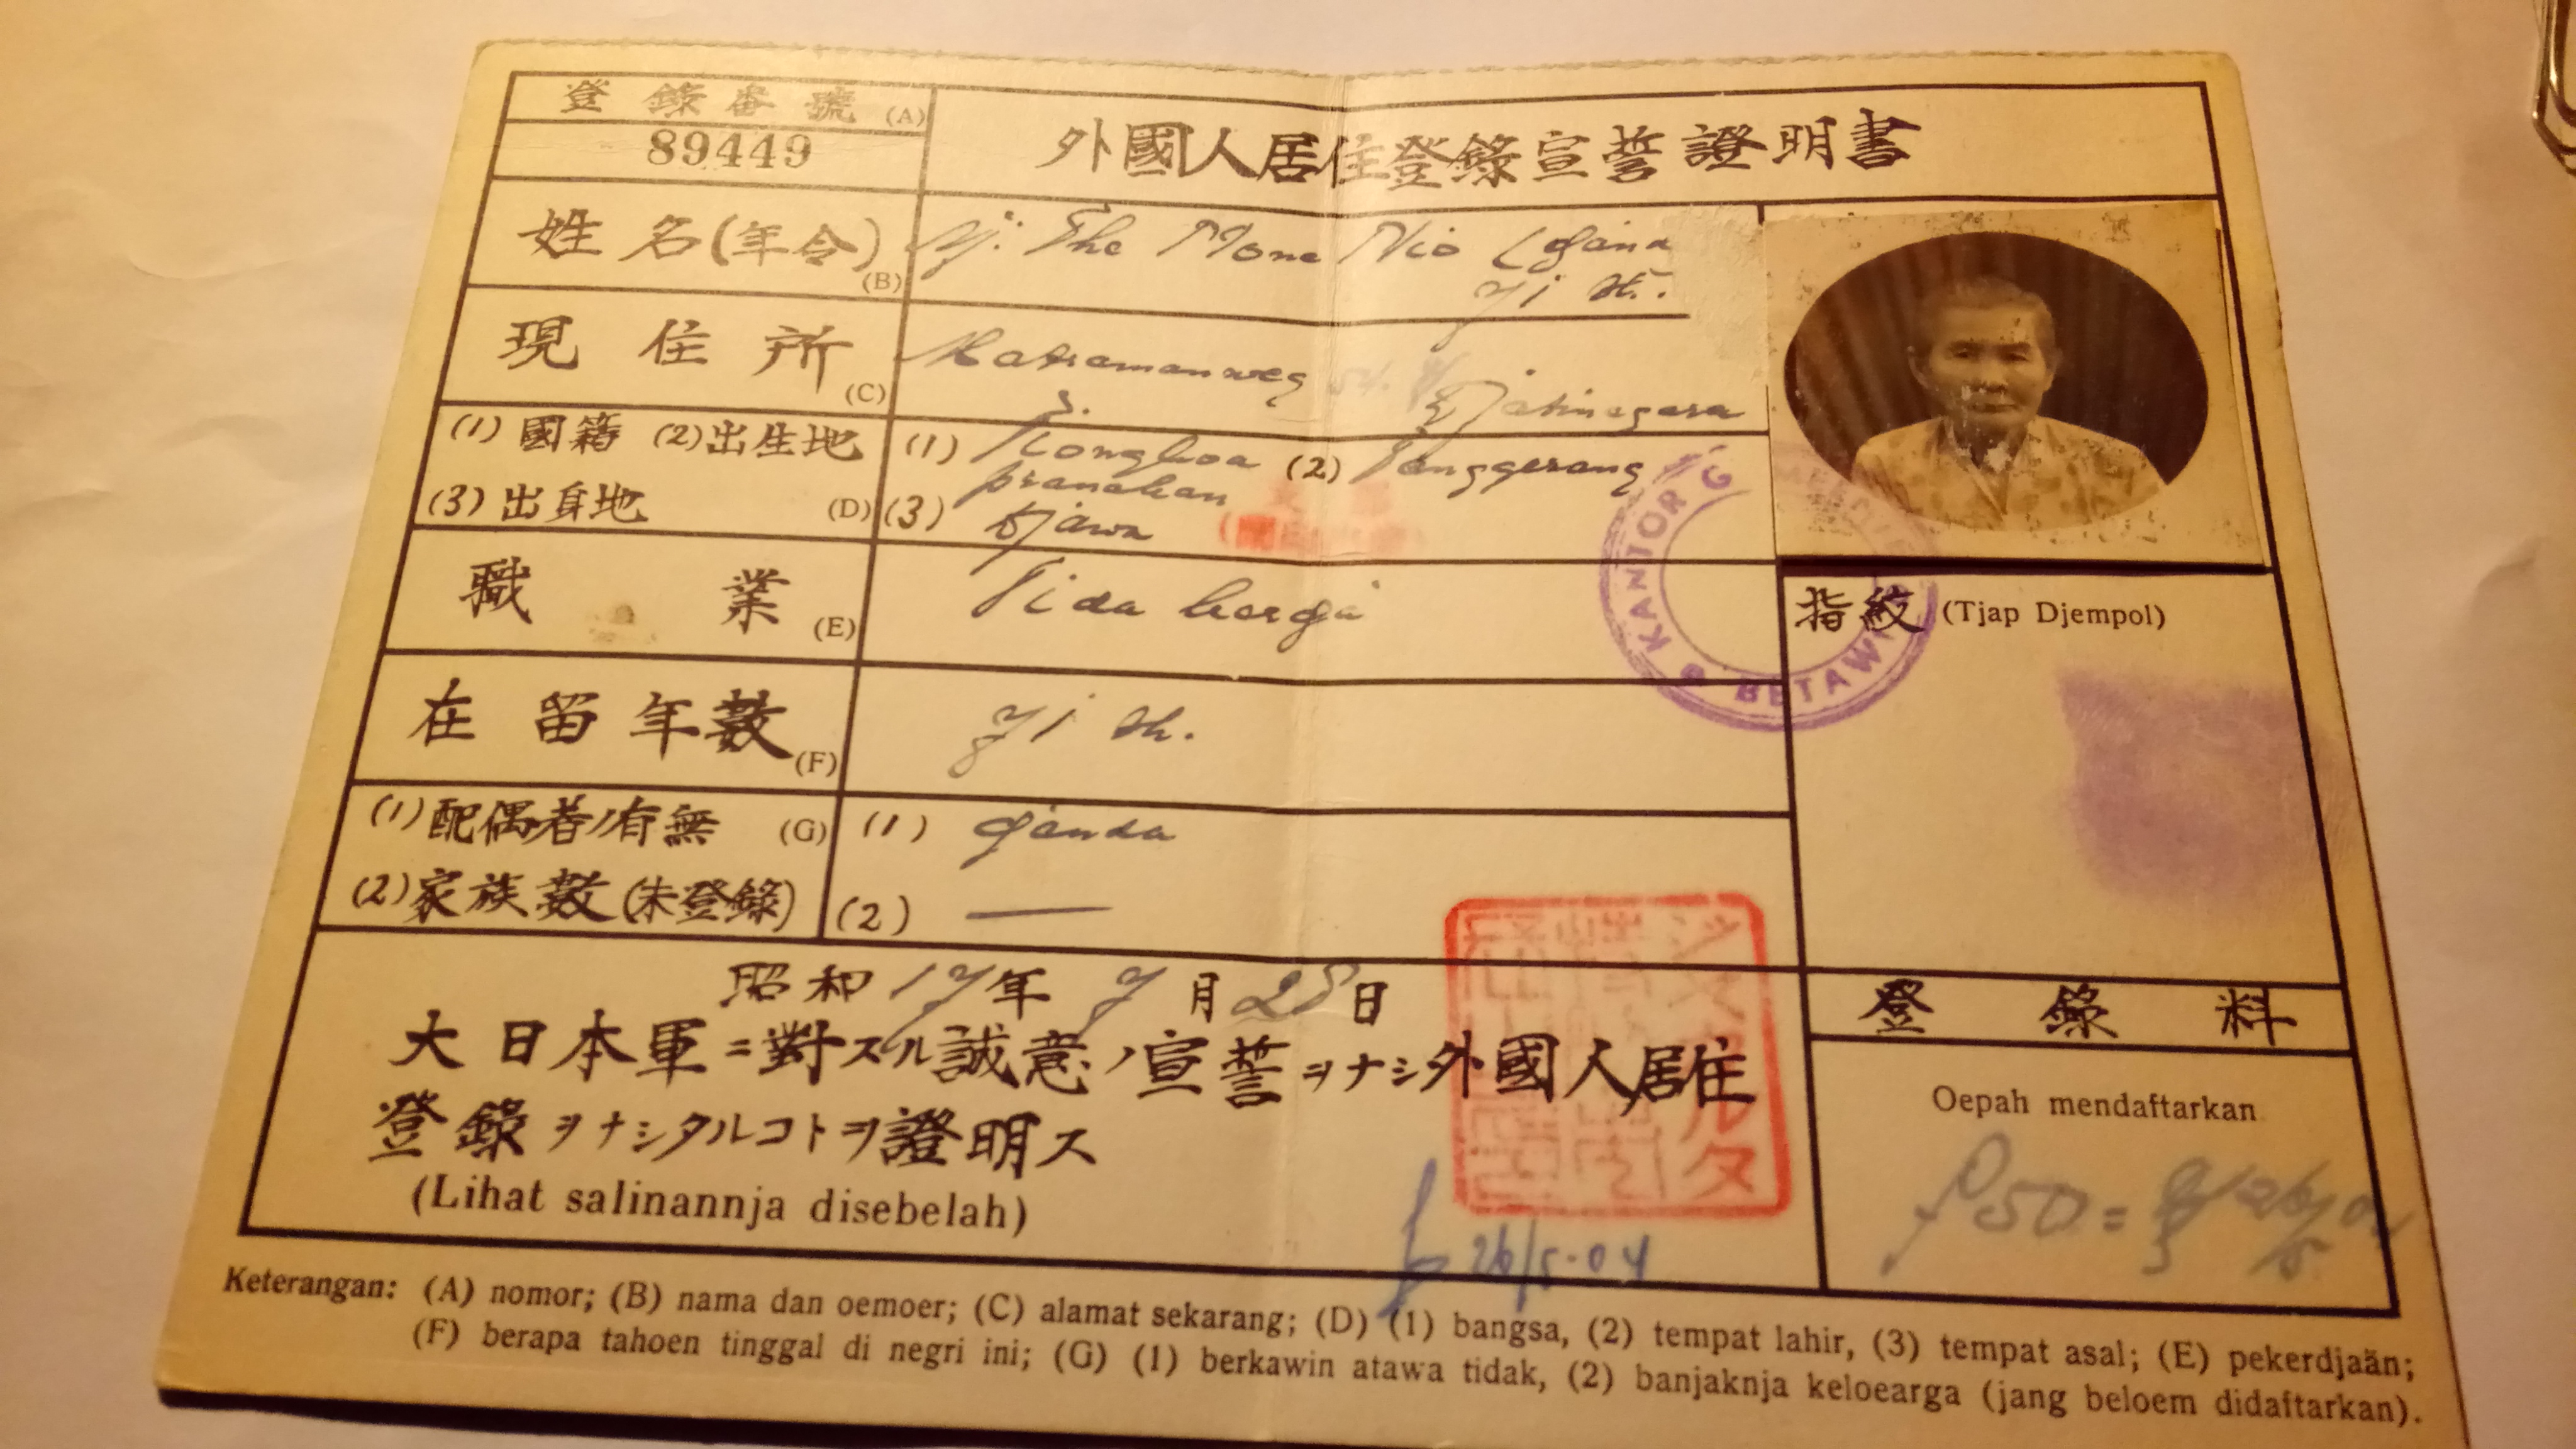 登錄番號 (A)
89449
外國人居住登錄宣誓證明書
姓名(年令) (B)
Nj: The Mone Nio (djanda
71 th.
現住所 (C)
Matramanweg
Djatinegara
(1) 國籍 (2) 出生地
(3) 出身地 (D)
(1) Tionghoa (2) Tanggerang
pranakan
(3) Djawa
職業 (E)
Tida kerdja
在留年數 (F)
71 th.
(1) 配偶者ノ有無 (G)
(1) djanda
(2) 家族數(未登錄)
(2) —
KANTOR G
BETAWI
指紋 (Tjap Djempol)
昭和17年 9月28日
大日本軍ニ對スル誠意ノ宣誓ヲナシ外國人居住
登錄ヲナシタルコトヲ證明ス
(Lihat salinannja disebelah)
ジャカルタ
26/5-04
登錄料
Oepah mendaftarkan
f 50 =
Keterangan: (A) nomor; (B) nama dan oemoer; (C) alamat sekarang; (D) (1) bangsa, (2) tempat lahir, (3) tempat asal; (E) pekerdjaän;
(F) berapa tahoen tinggal di negri ini; (G) (1) berkawin atawa tidak, (2) banjaknja keloearga (jang beloem didaftarkan).